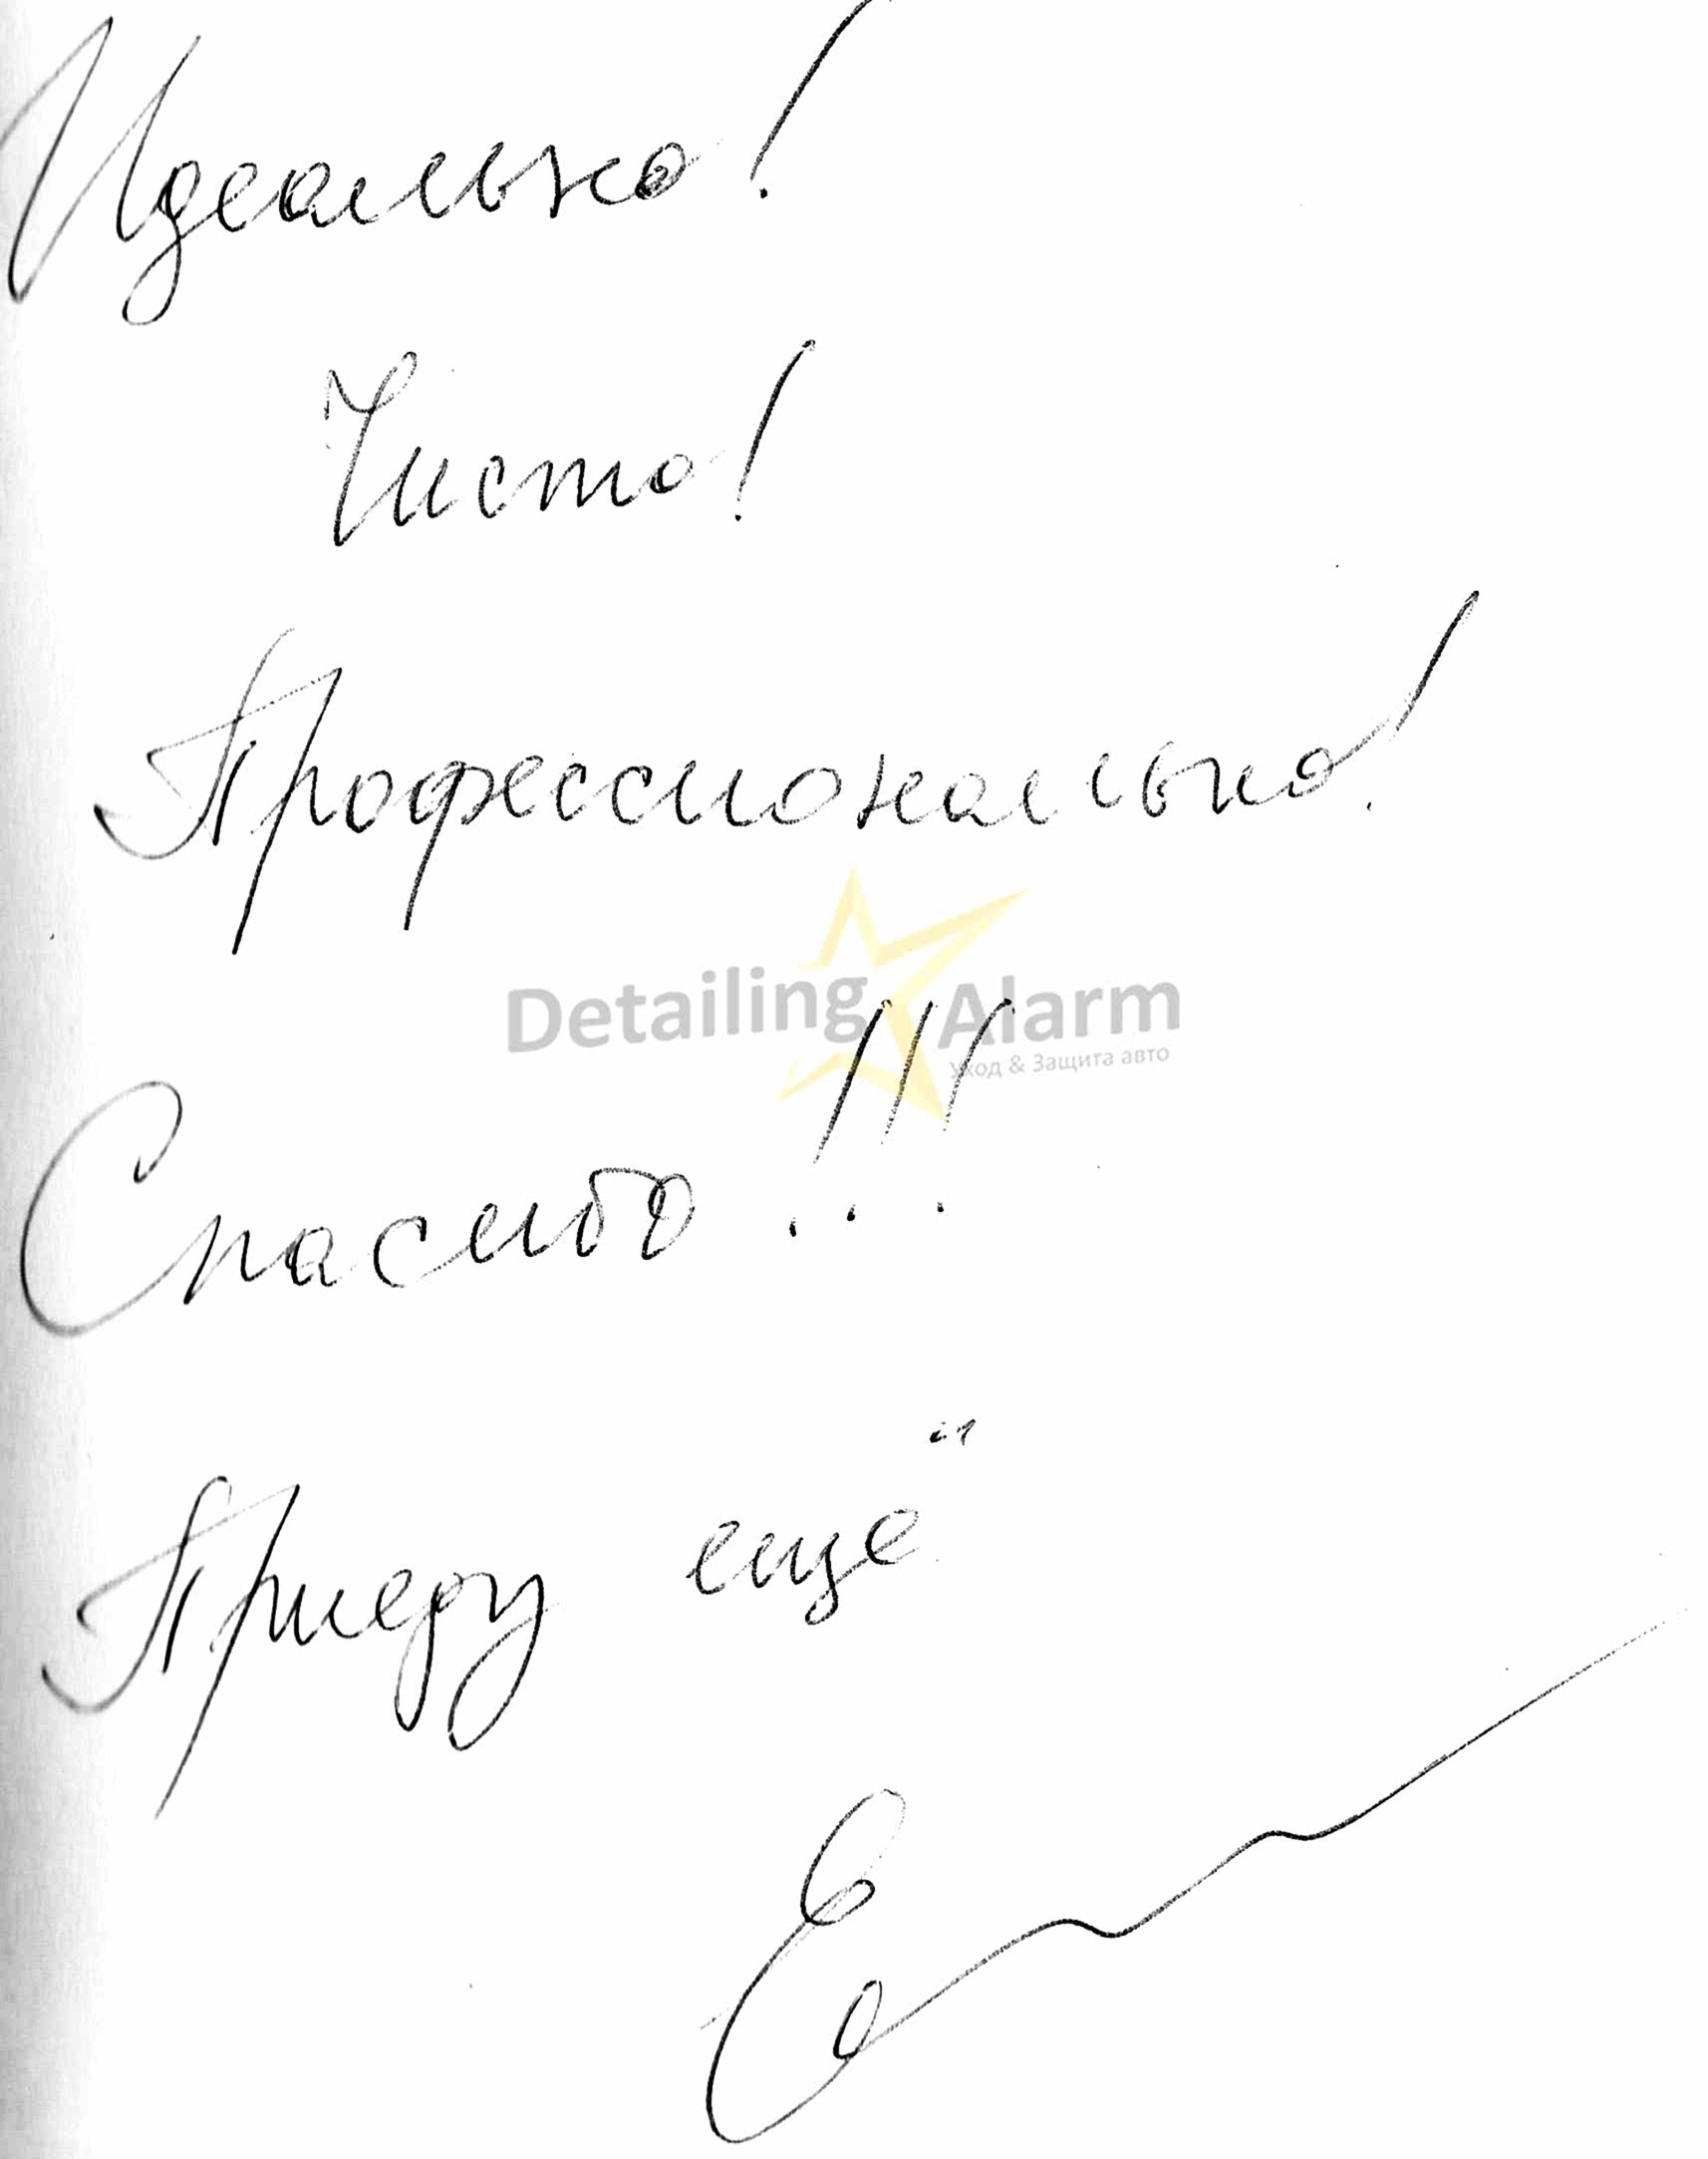 Идеально!
Чисто!
Профессионально!
Detailing Alarm
Уход & Защита авто
Спасибо!!!
Приеру ещё